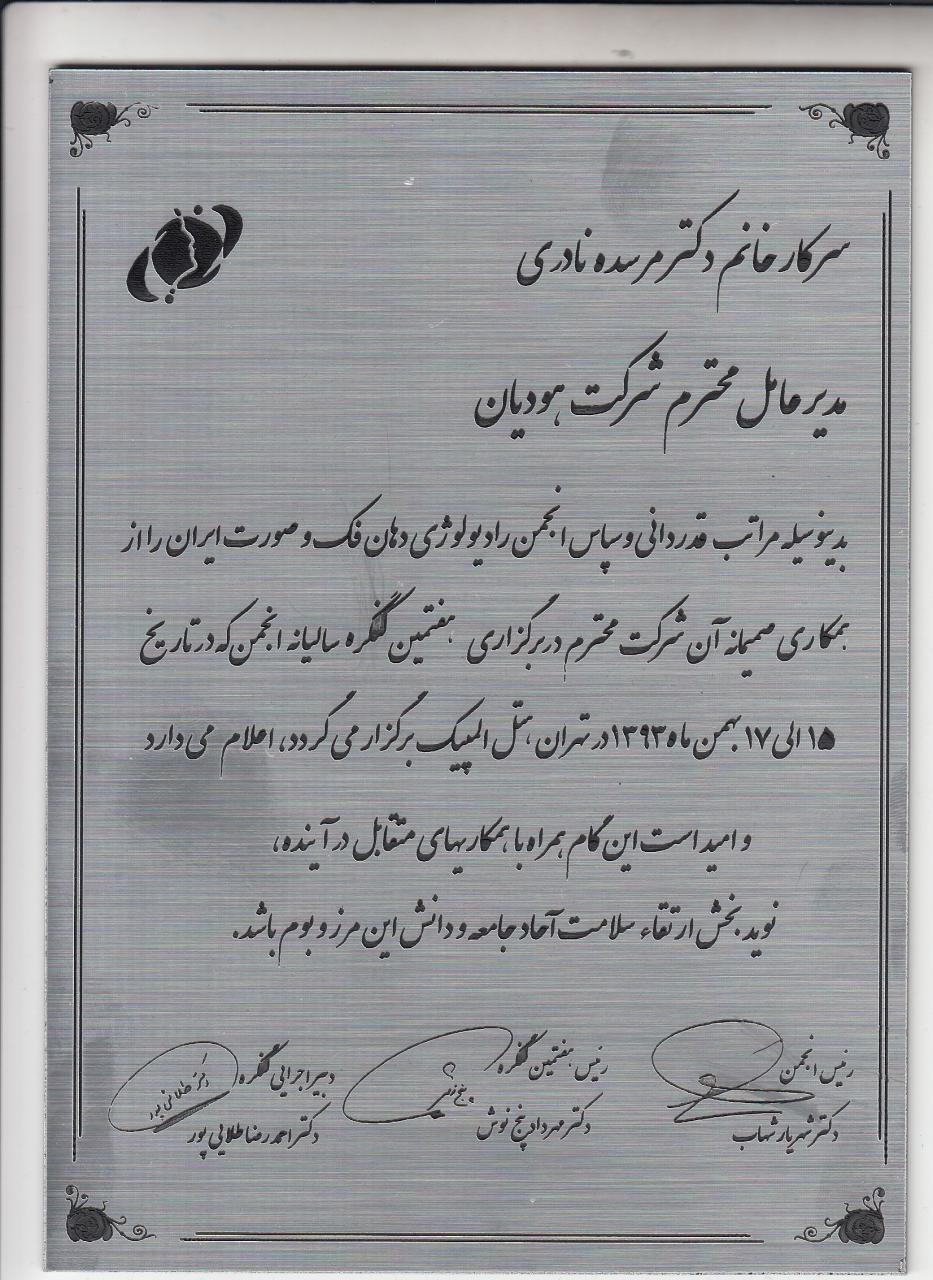 سرکار خانم دکتر مرسده نادری
مدیر عامل محترم شرکت هودیان
بدینوسیله مراتب قدردانی و سپاس انجمن رادیولوژی دهان فک و صورت ایران را از
همکاری صمیمانه آن شرکت محترم در برگزاری هفتمین کنگره سالیانه انجمن که در تاریخ
۱۵ الی ۱۷ بهمن ماه ۱۳۹۳ در تهران، هتل المپیک برگزار می گردد، اعلام می دارد
و امید است این گام همراه با همکاریهای متقابل در آینده،
نوید بخش ارتقاء سلامت آحاد جامعه و دانش این مرز و بوم باشد.
رئیس انجمن
دکتر شهریار شهاب
رئیس هفتمین کنگره
دکتر مهرداد پنج نوش
دبیر اجرایی کنگره
دکتر احمد رضا طلایی پور
دکتر طلایی پور